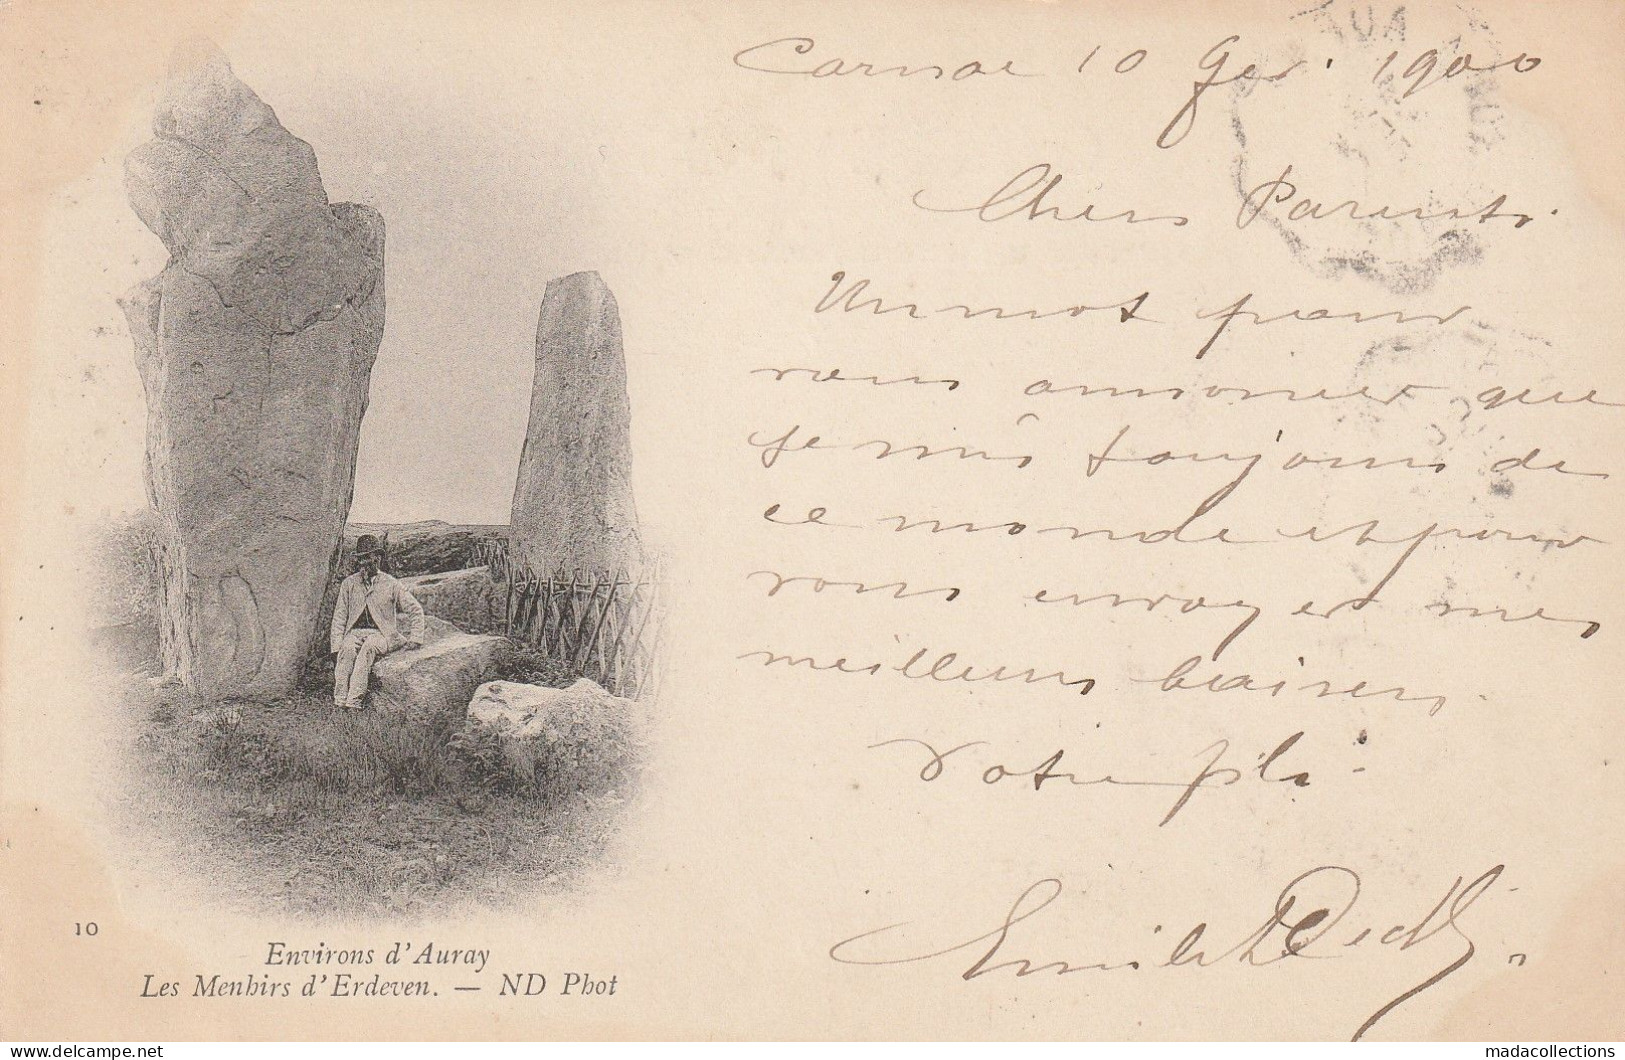 Carnac 10 1900
Chers Parents.
Un mot pour
vous annoncer que
je suis toujours de
ce monde et pour
vous envoyer mes
meilleurs baisers.
Votre fils
Emile
10
Environs d'Auray
Les Menhirs d'Erdeven. — ND Phot
delcampe.net
madacollections